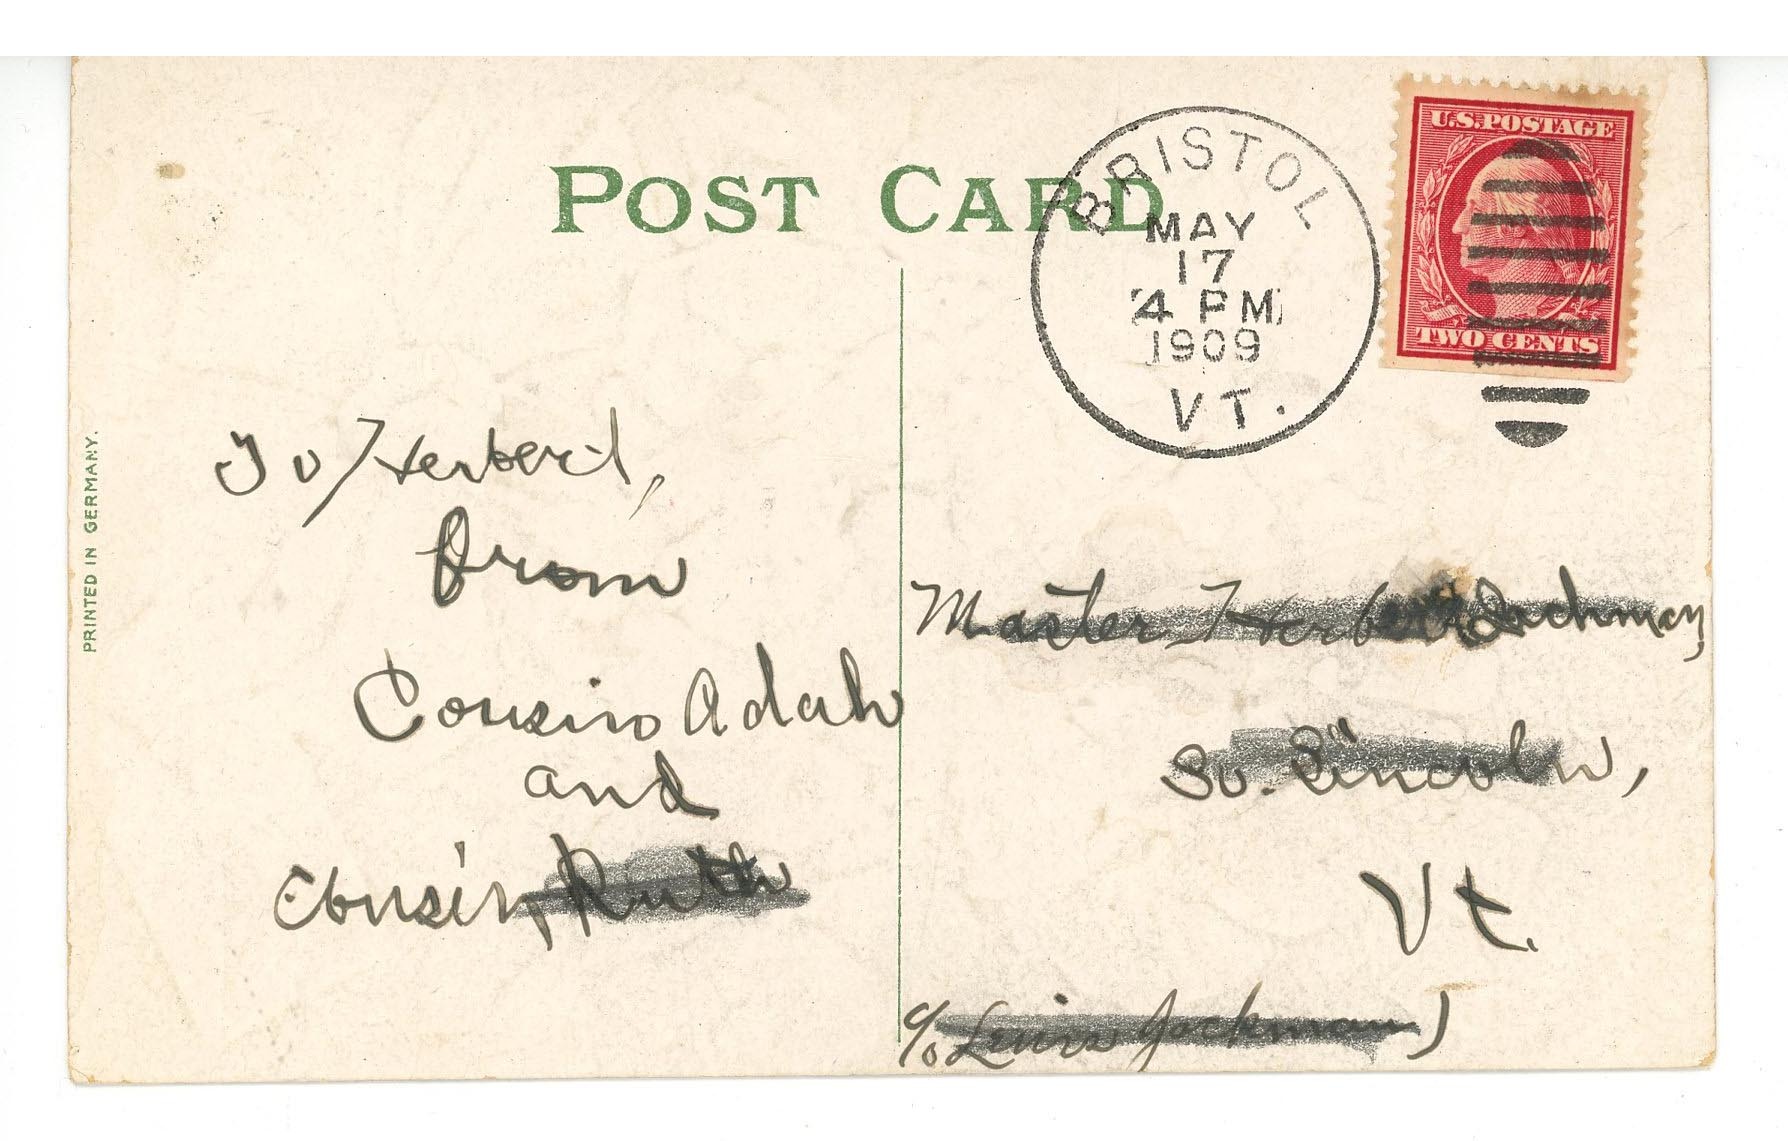 POST CARD
BRISTOL
MAY
17
4 PM
1909
VT.
U.S. POSTAGE
TWO CENTS
PRINTED IN GERMANY.
To Herbert,
from
Cousin Adah
and
Cousin Ruth
Master Herbert Jackman,
So. Lincoln,
Vt.
c/o Lewis Jackman)